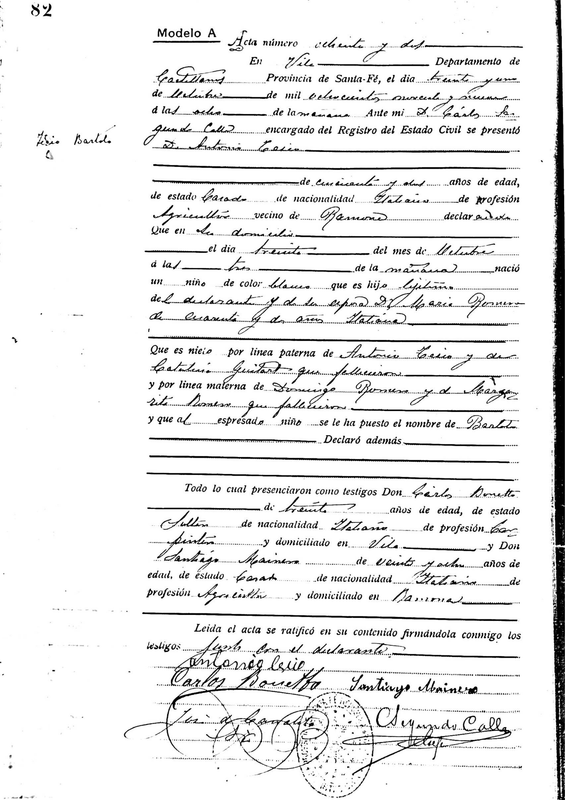 82
Modelo A
Acta número ochenta y dos
En Vila Departamento de
Castellanos Provincia de Santa-Fé, el día treinta y uno
de Octubre de mil ochocientos noventa y nueve
á las ocho de la mañana Ante mi D. Cárlos Se-
gundo Calla encargado del Registro del Estado Civil se presentó
D. Antonio Tesio
Tesio Bartolo
de cincuenta y dos años de edad,
de estado Casado de nacionalidad Italiano de profesión
Agricultor vecino de Ramona declarando
Que en su domicilio
el día treinta del mes de Octubre
á las tres de la mañana nació
un niño de color blanco que es hijo lejítimo
del declarante y de su esposa Da. Maria Romero
de cuarenta y dos años Italiana
Que es nieto por linea paterna de Antonio Tesio y de
Catalina que fallecieron
y por linea materna de Domingo Romero y de Marga-
rita Romero que fallecieron
y que al espresado niño se le ha puesto el nombre de Bartolo
Declaró además
Todo lo cual presenciaron como testigos Don Cárlos Bonetto
de treinta años de edad, de estado
Soltero de nacionalidad Italiano de profesión Car-
pintero y domiciliado en Vila y Don
Santiago Mainero de veinte y ocho años de
edad, de estado Casado de nacionalidad Italiano de
profesión Agricultor y domiciliado en Ramona
Leida el acta se ratificó en su contenido firmándola conmigo los
testigos junto con el declarante
Antonio Tesio
Carlos Bonetto Santiago Mainero
C Segundo Calla